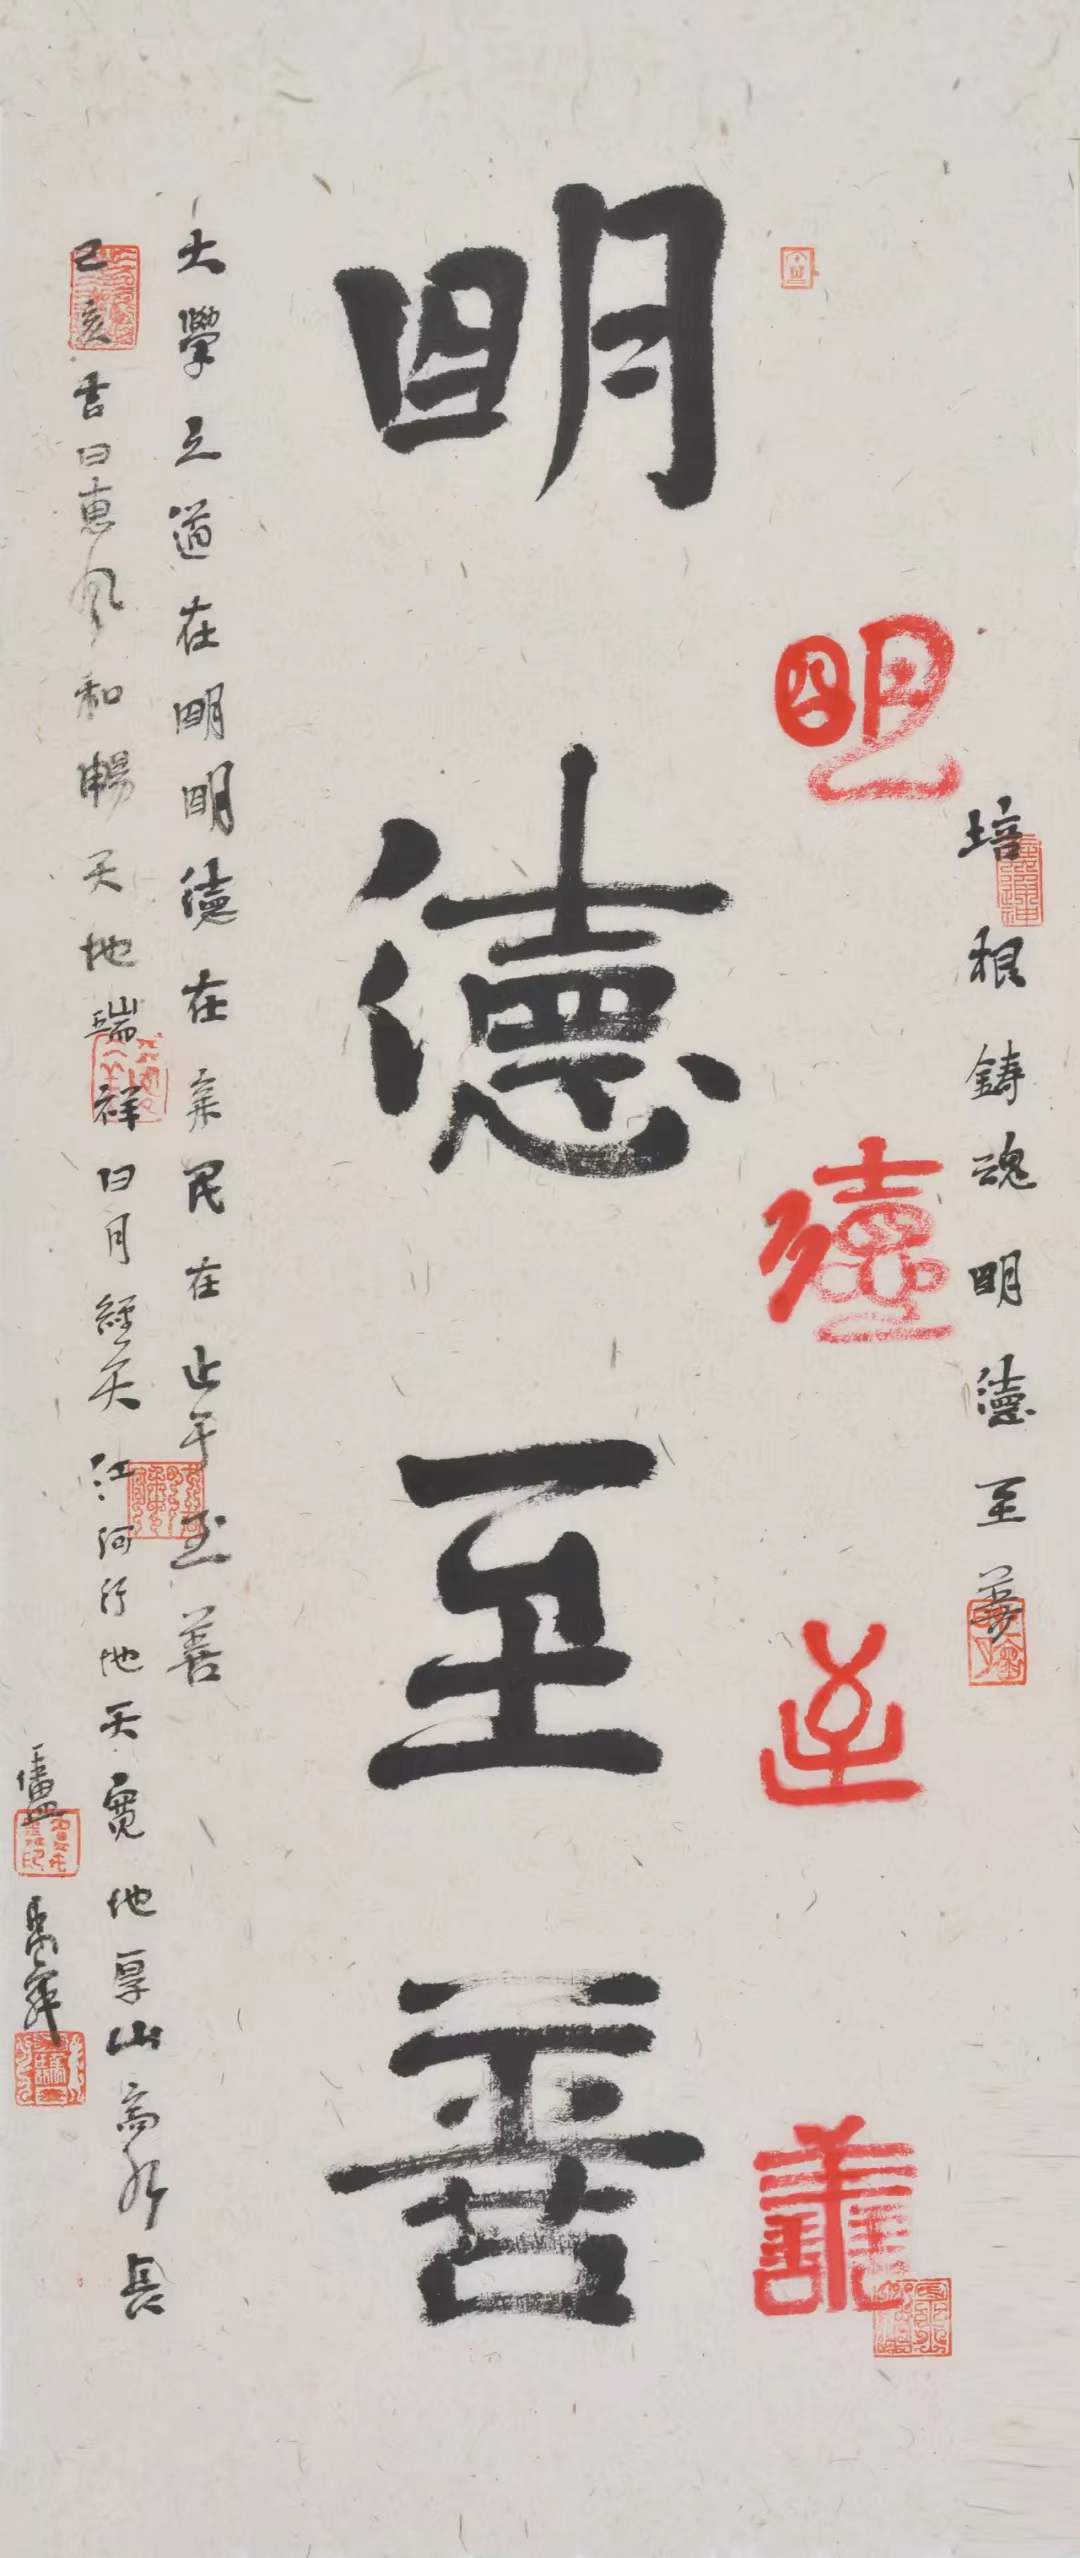 培根鑄魂明德至善
明德至善
明德至善
大學之道在明明德在亲民在止于至善
己亥吉日惠風和暢天地瑞祥日月經天江河行地天寬地厚山高水長
盧禹舜